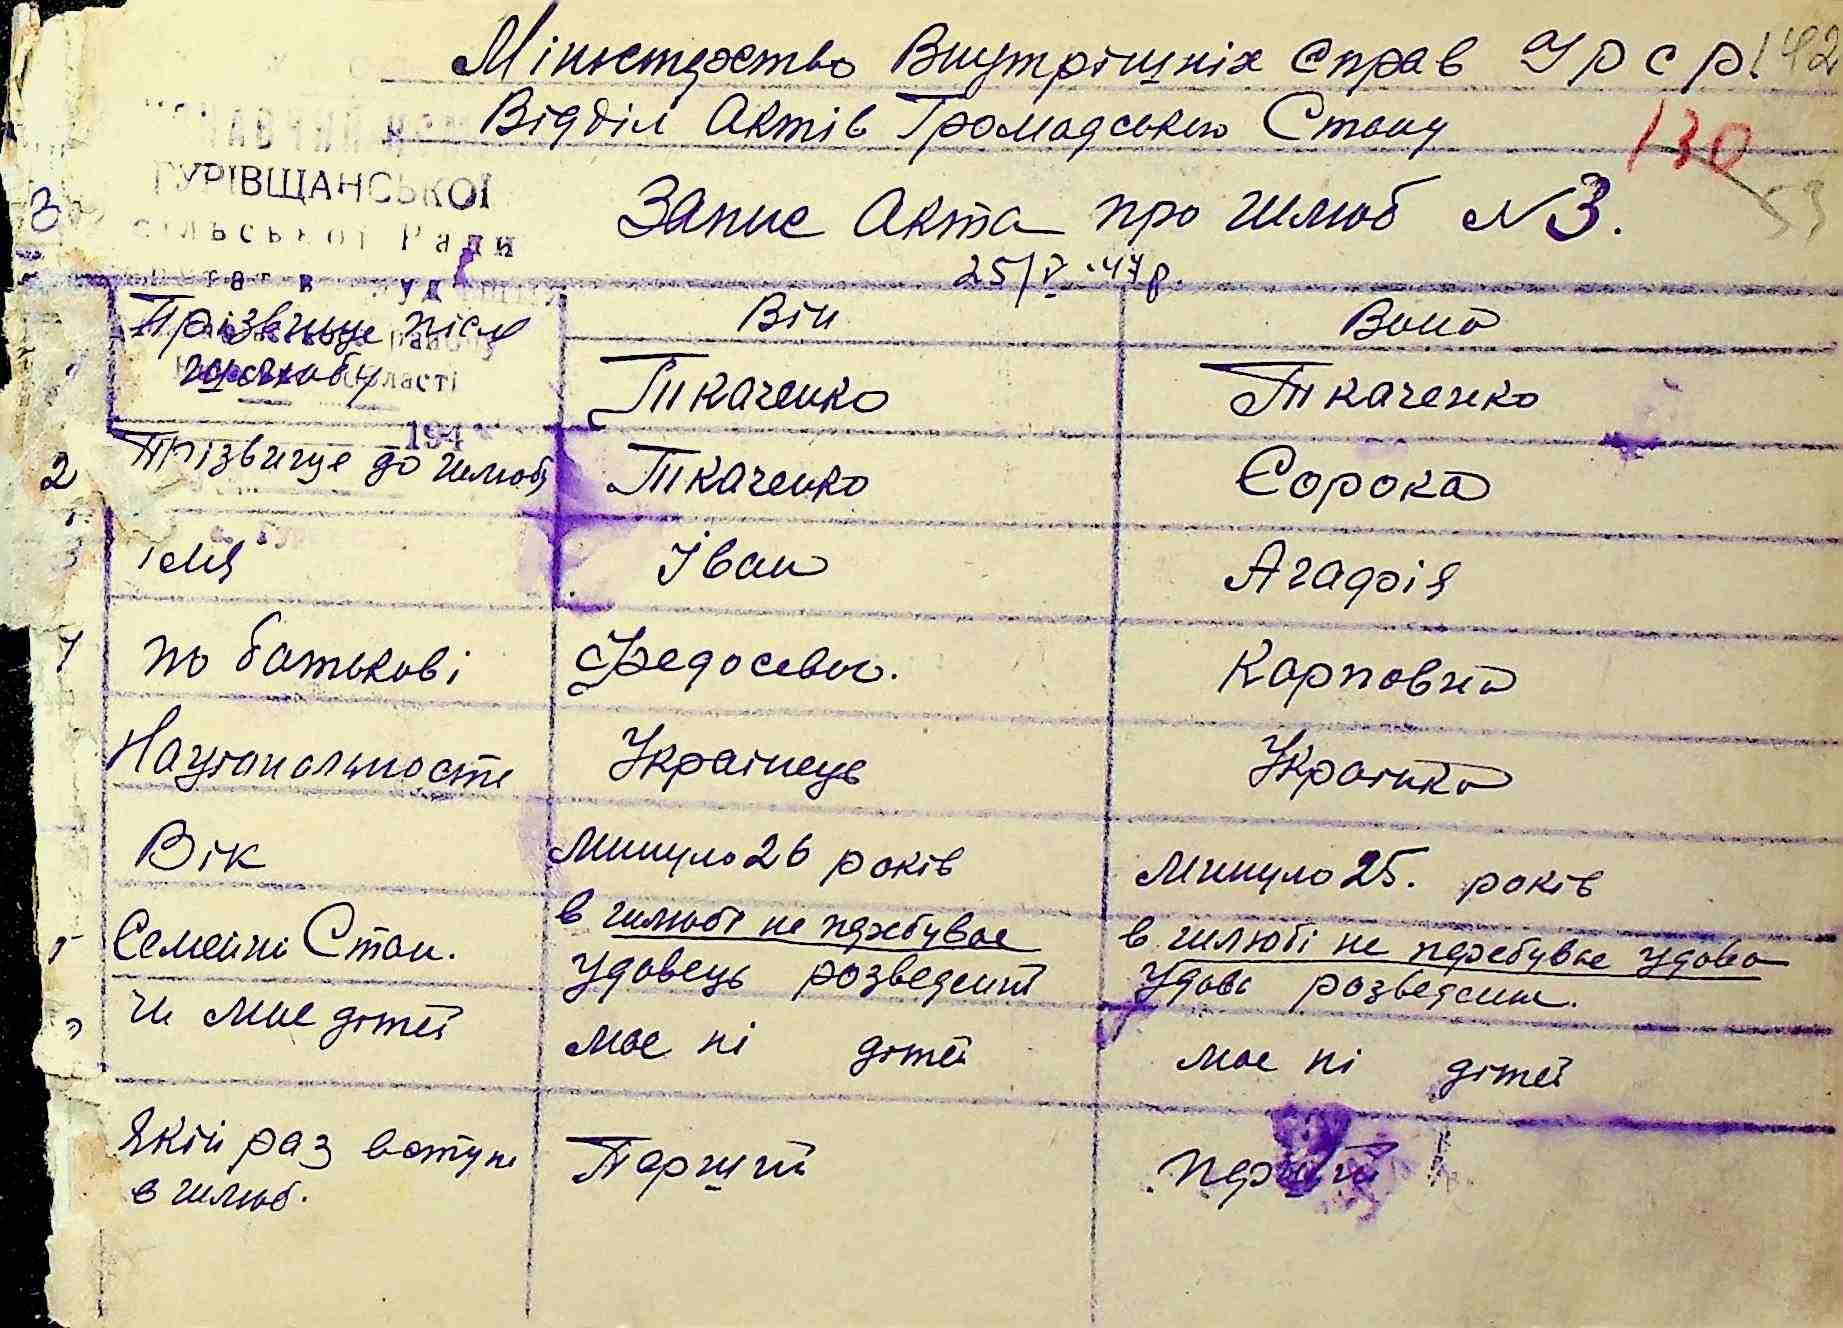 Міністерство Внутрішніх Справ УРСР
142
Відділ Актів Громадського Стану
130
53
ГУРІВЩАНСЬКОЇ
сільської Ради
3
Запис Акта про шлюб №3.
25/V.47р.
Він Вона
Прізвище після шлюбу
області
Ткаченко Ткаченко
194
2 Прізвище до шлюб Ткаченко Сорока
3 імя Іван Агафія
4 по батькові Федосевич. Карповна
Національность Українець Українка
Вік минуло 26 років минуло 25. років
5 Семейні Стан. в шлюбі не перебуває в шлюбі не перебуває удова
удовець розведений удова розведени.
чи має дітей має ні дітей має ні дітей
Якій раз вступи Перший перший
в шлюб.